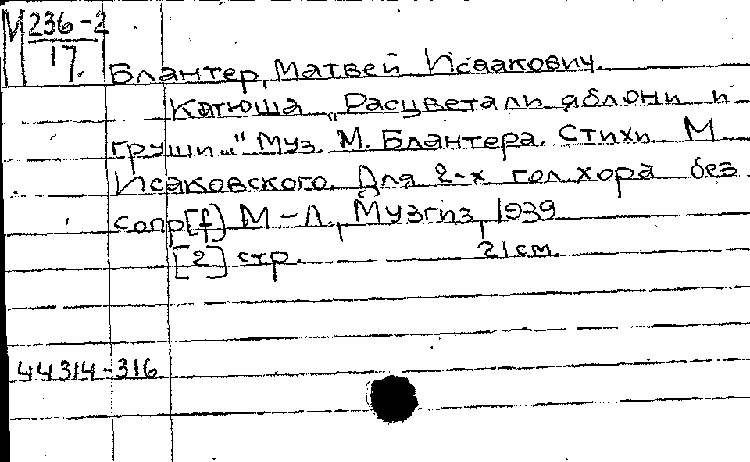 М 236-2
17.
Блантер, Матвей Исаакович.
Катюша „Расцветали яблони и
груши..." Муз. М. Блантера. Стихи М
Исаковского. Для 2-х гол хора без
сопр[f] М-Л, Музгиз, 1939
[2] стр. 21 см.
44314-316